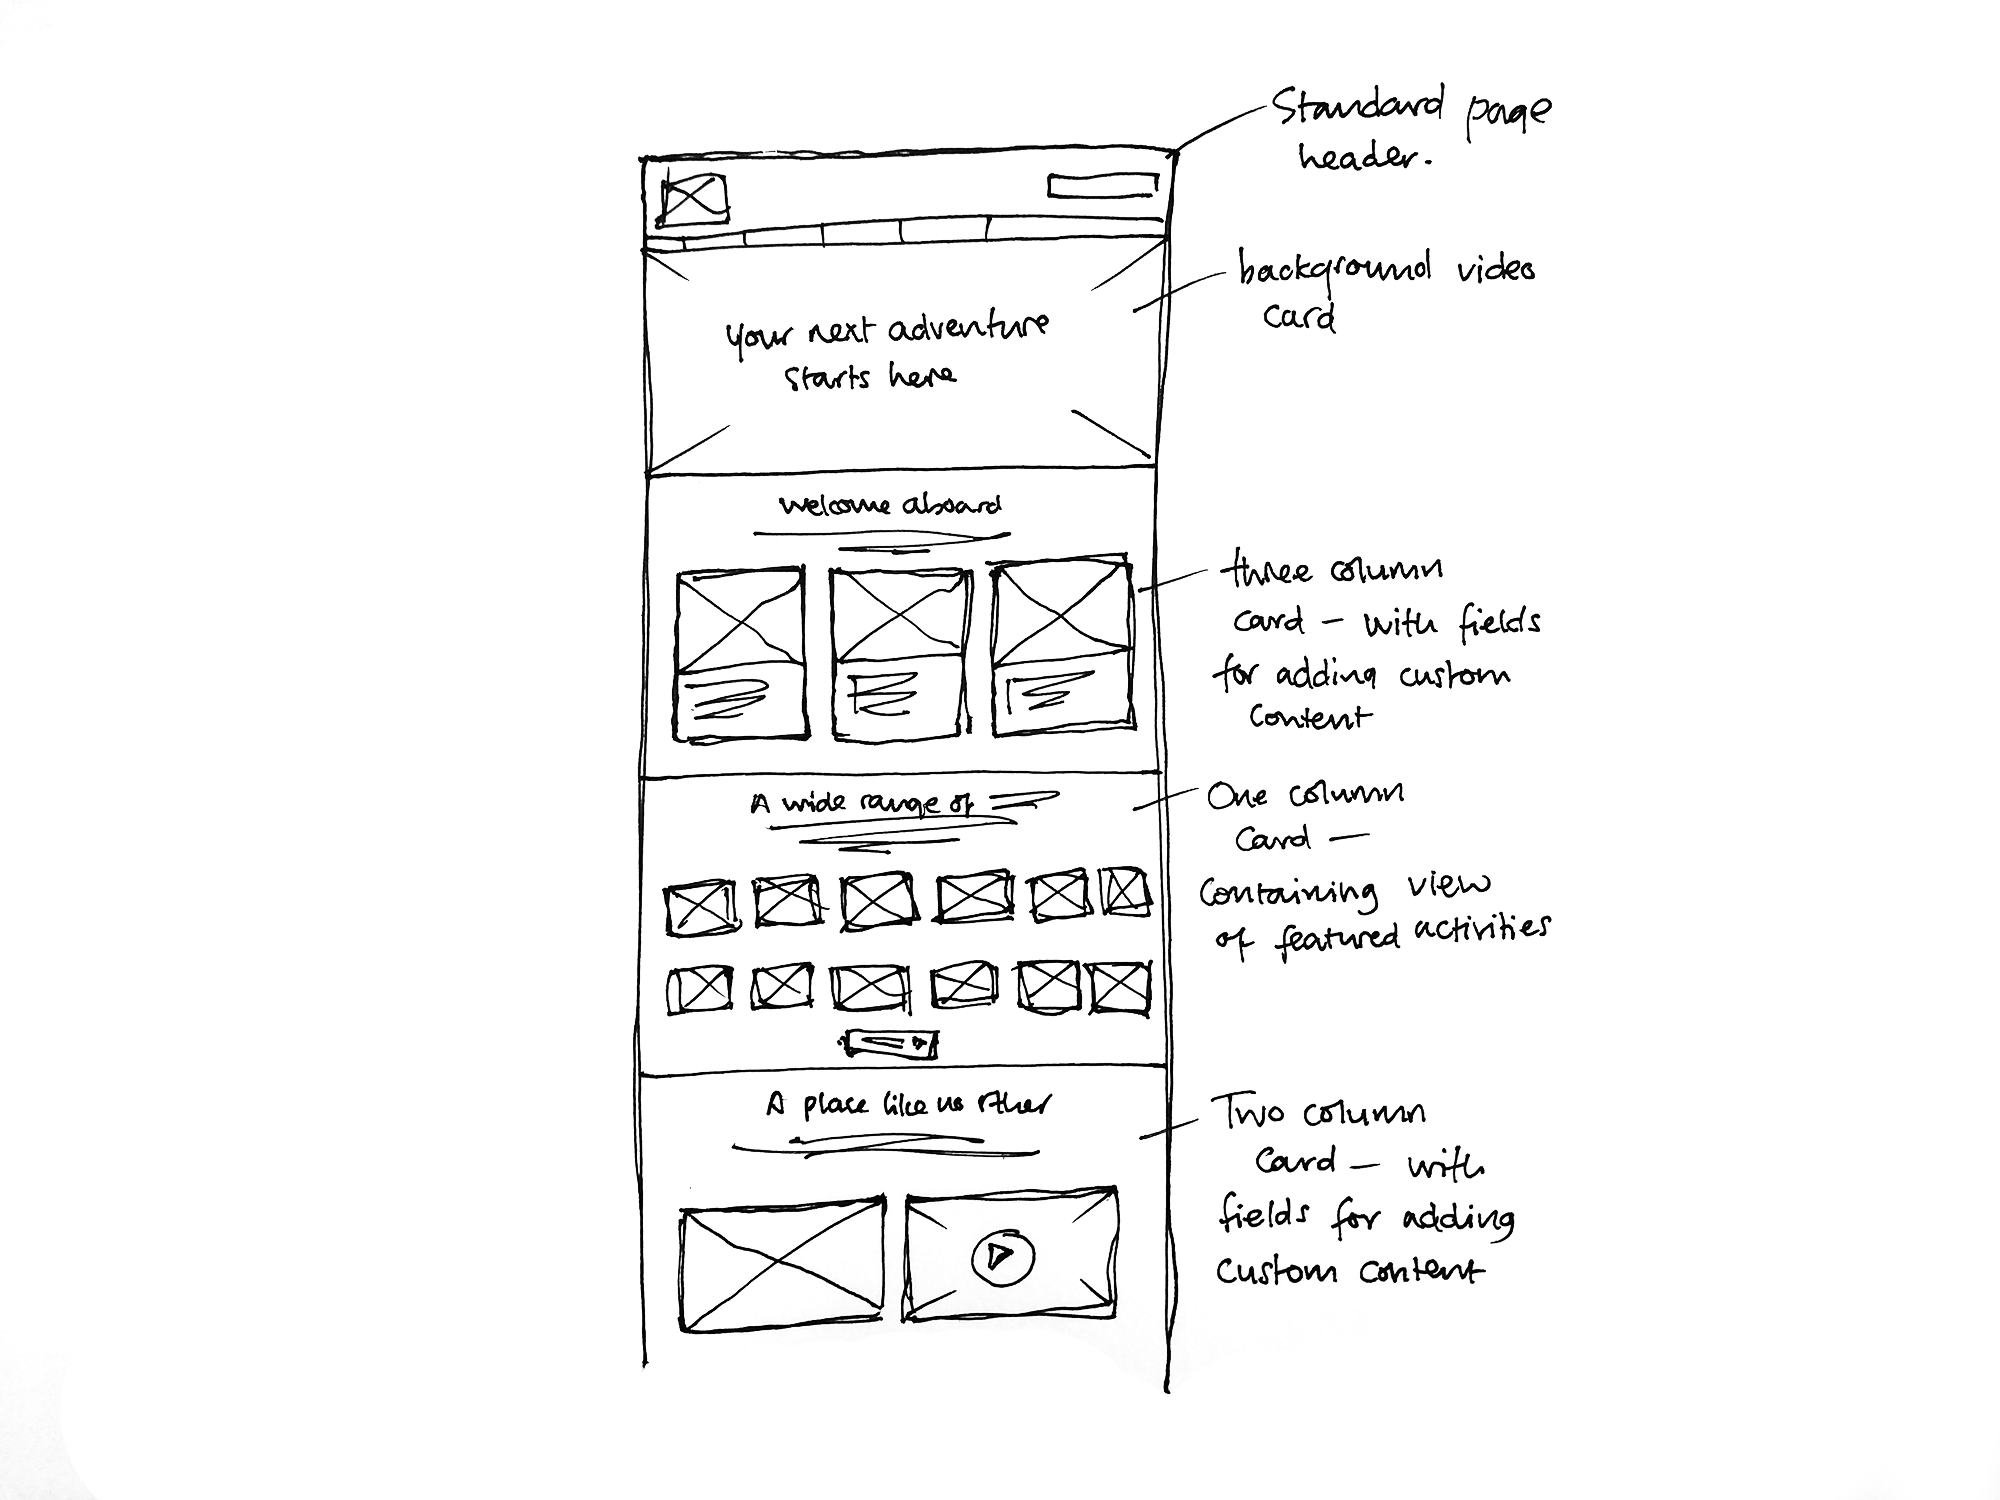 Standard page
header.
background video
card
Your next adventure
starts here
Welcome aboard
three column
card - with fields
for adding custom
content
A wide range of
One column
Card -
containing view
of featured activities
A place like no other
Two column
card - with
fields for adding
custom content